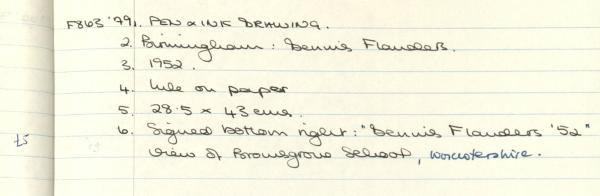 F863'79. 1. PEN & INK DRAWING.
2. Birmingham: Dennis Flanders.
3. 1952.
4. Ink on paper
5. 28.5 x 43 cms.
6. Signed bottom right: "Dennis Flanders '52"
View of Bromsgrove School, Worcestershire.